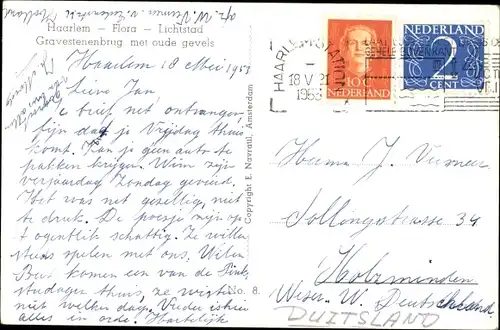 Afz. W. Vermeer
Haarlem - Flora - Lichtstad
Gravestenenbrug met oude gevels
Haarlem 18 Mei 1953
Lieve Jan
Je brief net ontvangen
fijn dat je Vrijdag thuis
komt. Kan je geen auto te
pakken krijgen. Wim zijn
verjaardag Zondag gevierd.
Het was net gezellig, niet
te druk. De poesjes zijn op
't ogenblik schattig. Ze willen
steeds spelen met ons. Wil en
Bea komen een van de Pink-
sterdagen thuis, ze wisten
niet welken dag. Verder is hier
alles in orde. Hartelijk
Copyright E. Navratil, Amsterdam
No. 8.
HAARLEM-STATION
18 V 21
1953
10 c
NEDERLAND
NEDERLAND
2
CENT
Herrn J. Vermeer
Sollingstrasse 34
Holzminden
Weser. W. Deutschland
DUITSLAND